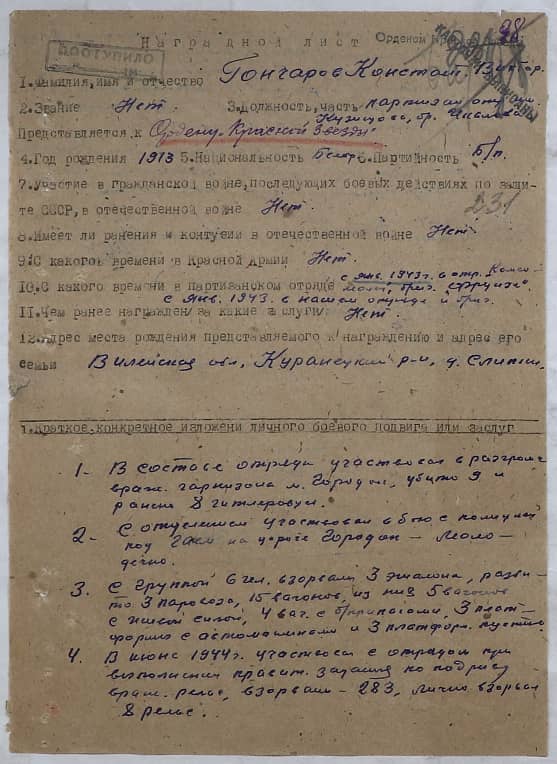 98
Наградной лист Орденом
ПОСТУПИЛО
1.Фамилия, имя и отчество Гончаров Констант.
2.Звание Нет 3.Должность, часть партизан
Представляется к Ордену "Красной Звезды"
4.Год рождения 1913 5.Национальность Белор. 6.Партийность Б/п.
7.Участие в гражданской войне, последующих боевых действиях по защи-
те СССР, в отечественной войне Нет
231
8.Имеет ли ранения и контузии в отечественной войне Нет
9.С какого времени в Красной Армии Нет.
с янв. 1943 г. в отр. Комсо-
10.С какого времени в Партизанском отряде мол, бриг. Фрунзе
с янв. 1943. в нашем отряде и бриг.
11.Чем ранее награжден/за какие заслуги/ Нет.
12.Адрес места рождения представляемого к награждению и адрес его
семьи Вилейская обл, Куранецкий р-н, д.
1.Краткое, конкретное изложени личного боевого подвига или заслуг
1- В составе отряда участвовал в разгроме
враж. гарнизона м. Городок, убито 9 и
ранено 8 гитлеровцев.
2- С отделением участвовал в бою с
под на дороге Городок - Моло-
дечно.
3. С группой 6 чел. взорвали 3 эшалона, разби-
то 3 паровоза, 15 вагонов, из них 5 вагонов
с живой силой, 4 ваг. с б/припасами, 3 плат-
формы с автомашинами и 3 платформ.
4. В июне 1944 г. участвовал с отрядом при
выполнении правит. задания по подрыву
враж. рельс, взорвали - 283, лично взорвал
8 рельс.